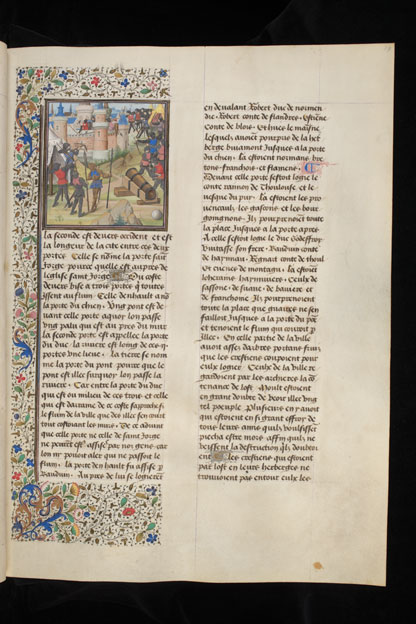 la seconde est devers occident et est
la longeur de la cite entre ces deux
portes Celle se nōme la porte saīt
Jorge pource quelle est aupres de
leglise saint Jorge Du coste
devers bise a trois portes qͥ toutes
issent au flum Celle denhault a nō
la porte du chien Ung pont est de
vant celle porte aquoy lon passe
la seconde porte est appellee la porte
du duc la riviere est long de ces
portes une lieue La tierce se nom
me la porte du pont pource que le
pont est illec surquoy lon passe la
riviere Car entre la porte du duc
qui est ou milieu de ces trois et celle
qui est
le flum de la ville que des illec sen court
tout costoiant les murs De ce advint
que celle porte ne celle de saint Jorge
ne pouoit estre assise par nos gens car
lon ny pouoit aler qui ne passoit le
flum la porte den hault fu assise par
Au pres de lui se logierent
en devalant Robert duc de normen
die Robert conte de flandres Estiēne
Conte de blois Et hues le maisne
lesquelx avoiēt pourpris de la her
berge buiamont Jusques a la porte
du chien La estoient normans bre
tons franchois et flamens
Devant celle porte sestoit logie le
conte raimon de Thoulouse et le
vesque du puy La estoient les pro
vencaulx les gascons et les bour
goingnons Ilz pourprenoiēt toute
la place Jusques a la porte apres
A celle sestoit logie le duc Godeffroy
Eustasse son frere Bauduin conte
de haynnau Regnaut conte de thoul
et de montagu La estoiēt
lohereins haynnuiers Ceulx de
sassone de suave de baviere et
de franchonie Ilz pourprenoient
toute la place que guaires ne sen
failloit Jusques a la porte du pont
et tenoient le flum qui couroit par
illec En celle partie de la ville
avoit assez darbres portans fruit
que les crestiens coupoient pour
eulx logier Ceulx de la ville re
gardoient par les archieres la cō
tenance de lost Moult estoient
en grant doubte de veoir illec ung
tel pocuple Plusieurs en y avoit
qui estoient en si grant effroy de
tous leurs amis quilz voulsissent
piecha estre mors affin quilz ne
veissent la destruction quilz doubtoiēt
les crestiens qui estoient
par lost en leurs herberges ne
trouvoient pas entour eulx les